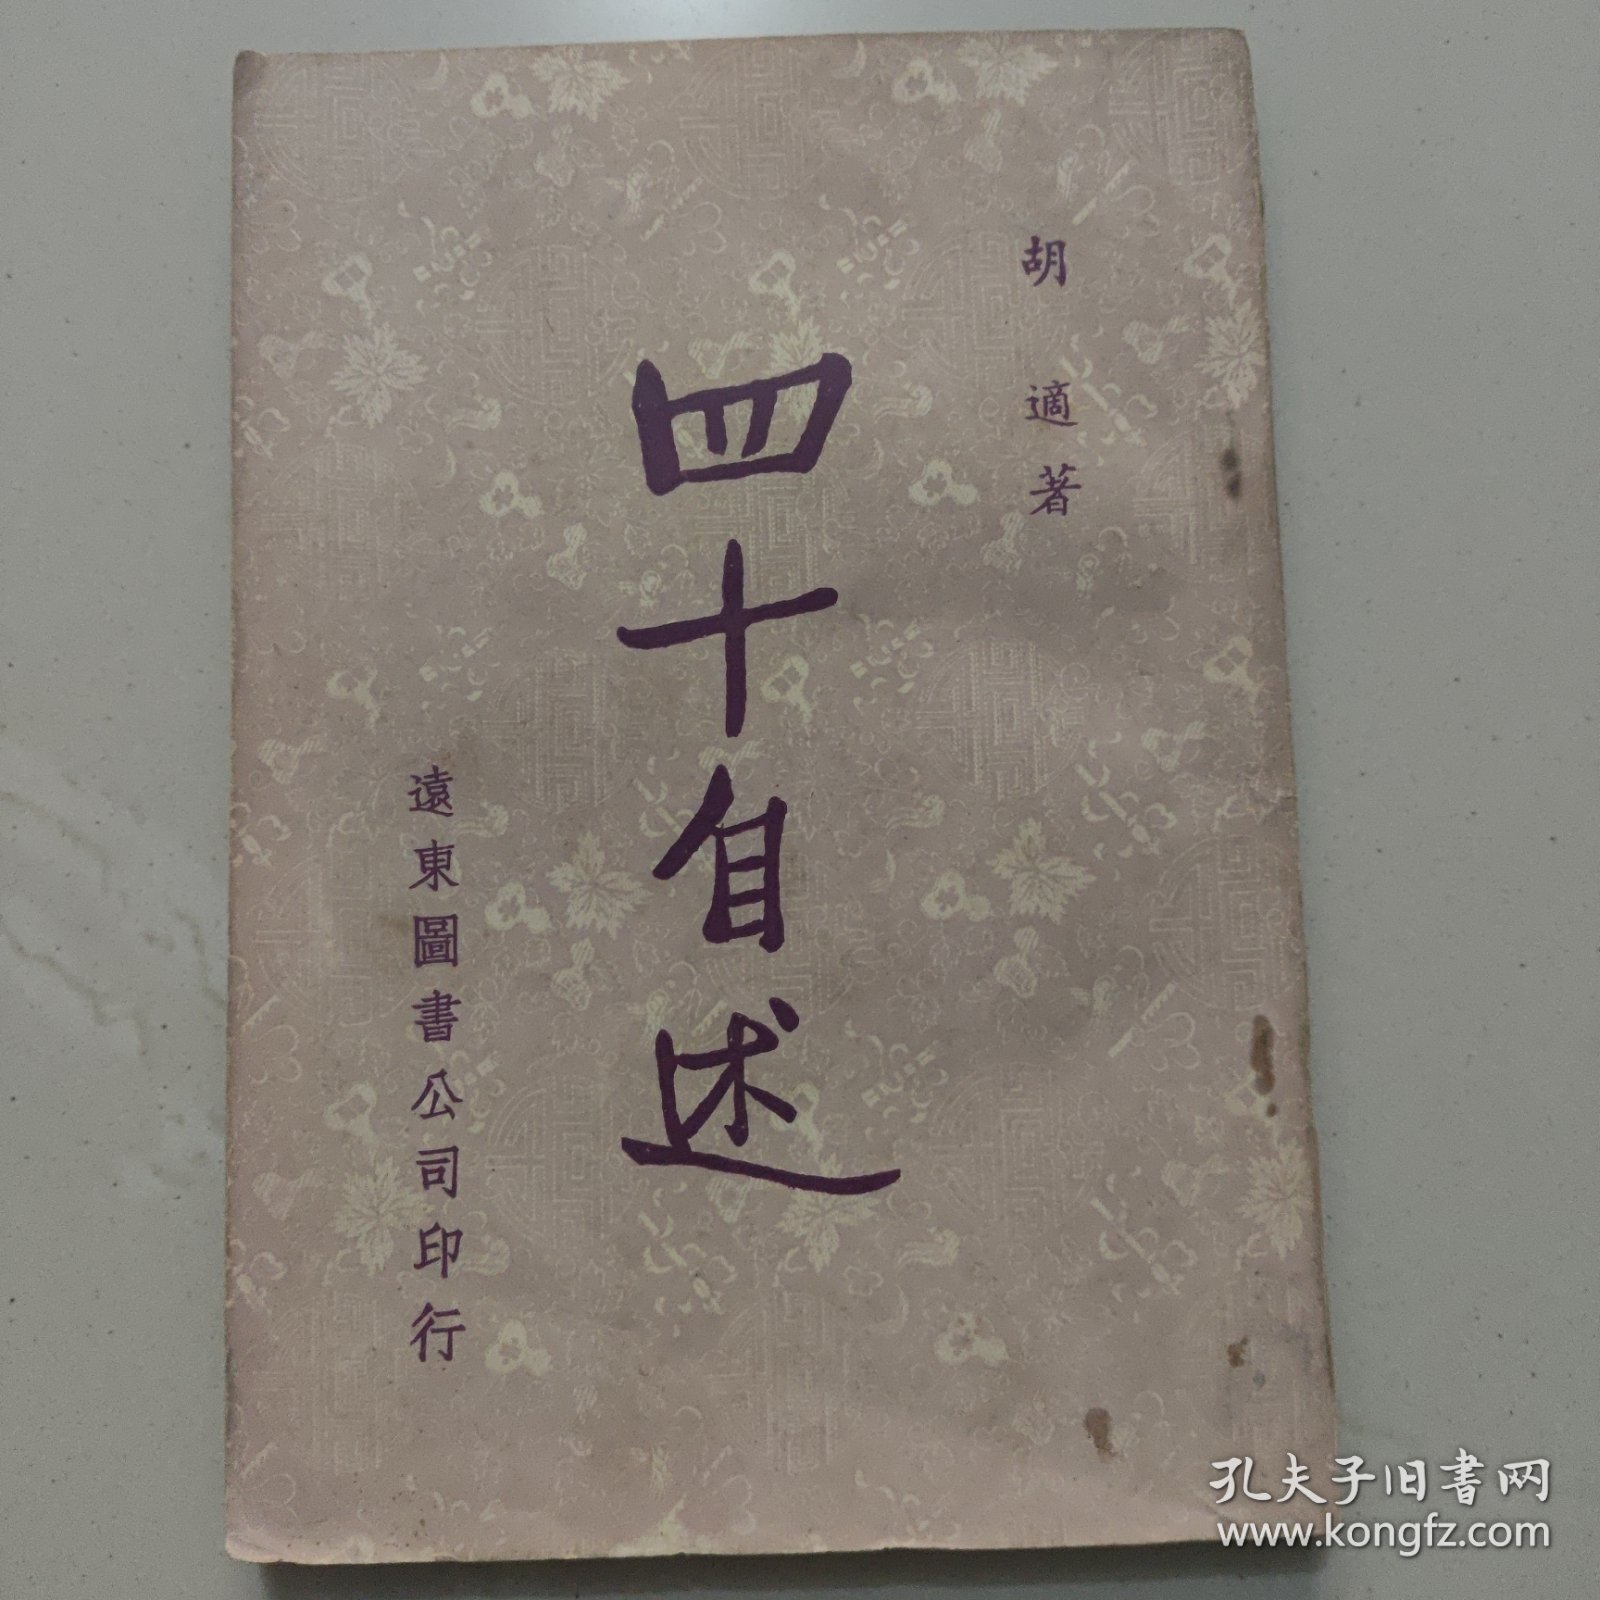 胡適著
四十自述
遠東圖書公司印行
孔夫子旧書网
www.kongfz.com